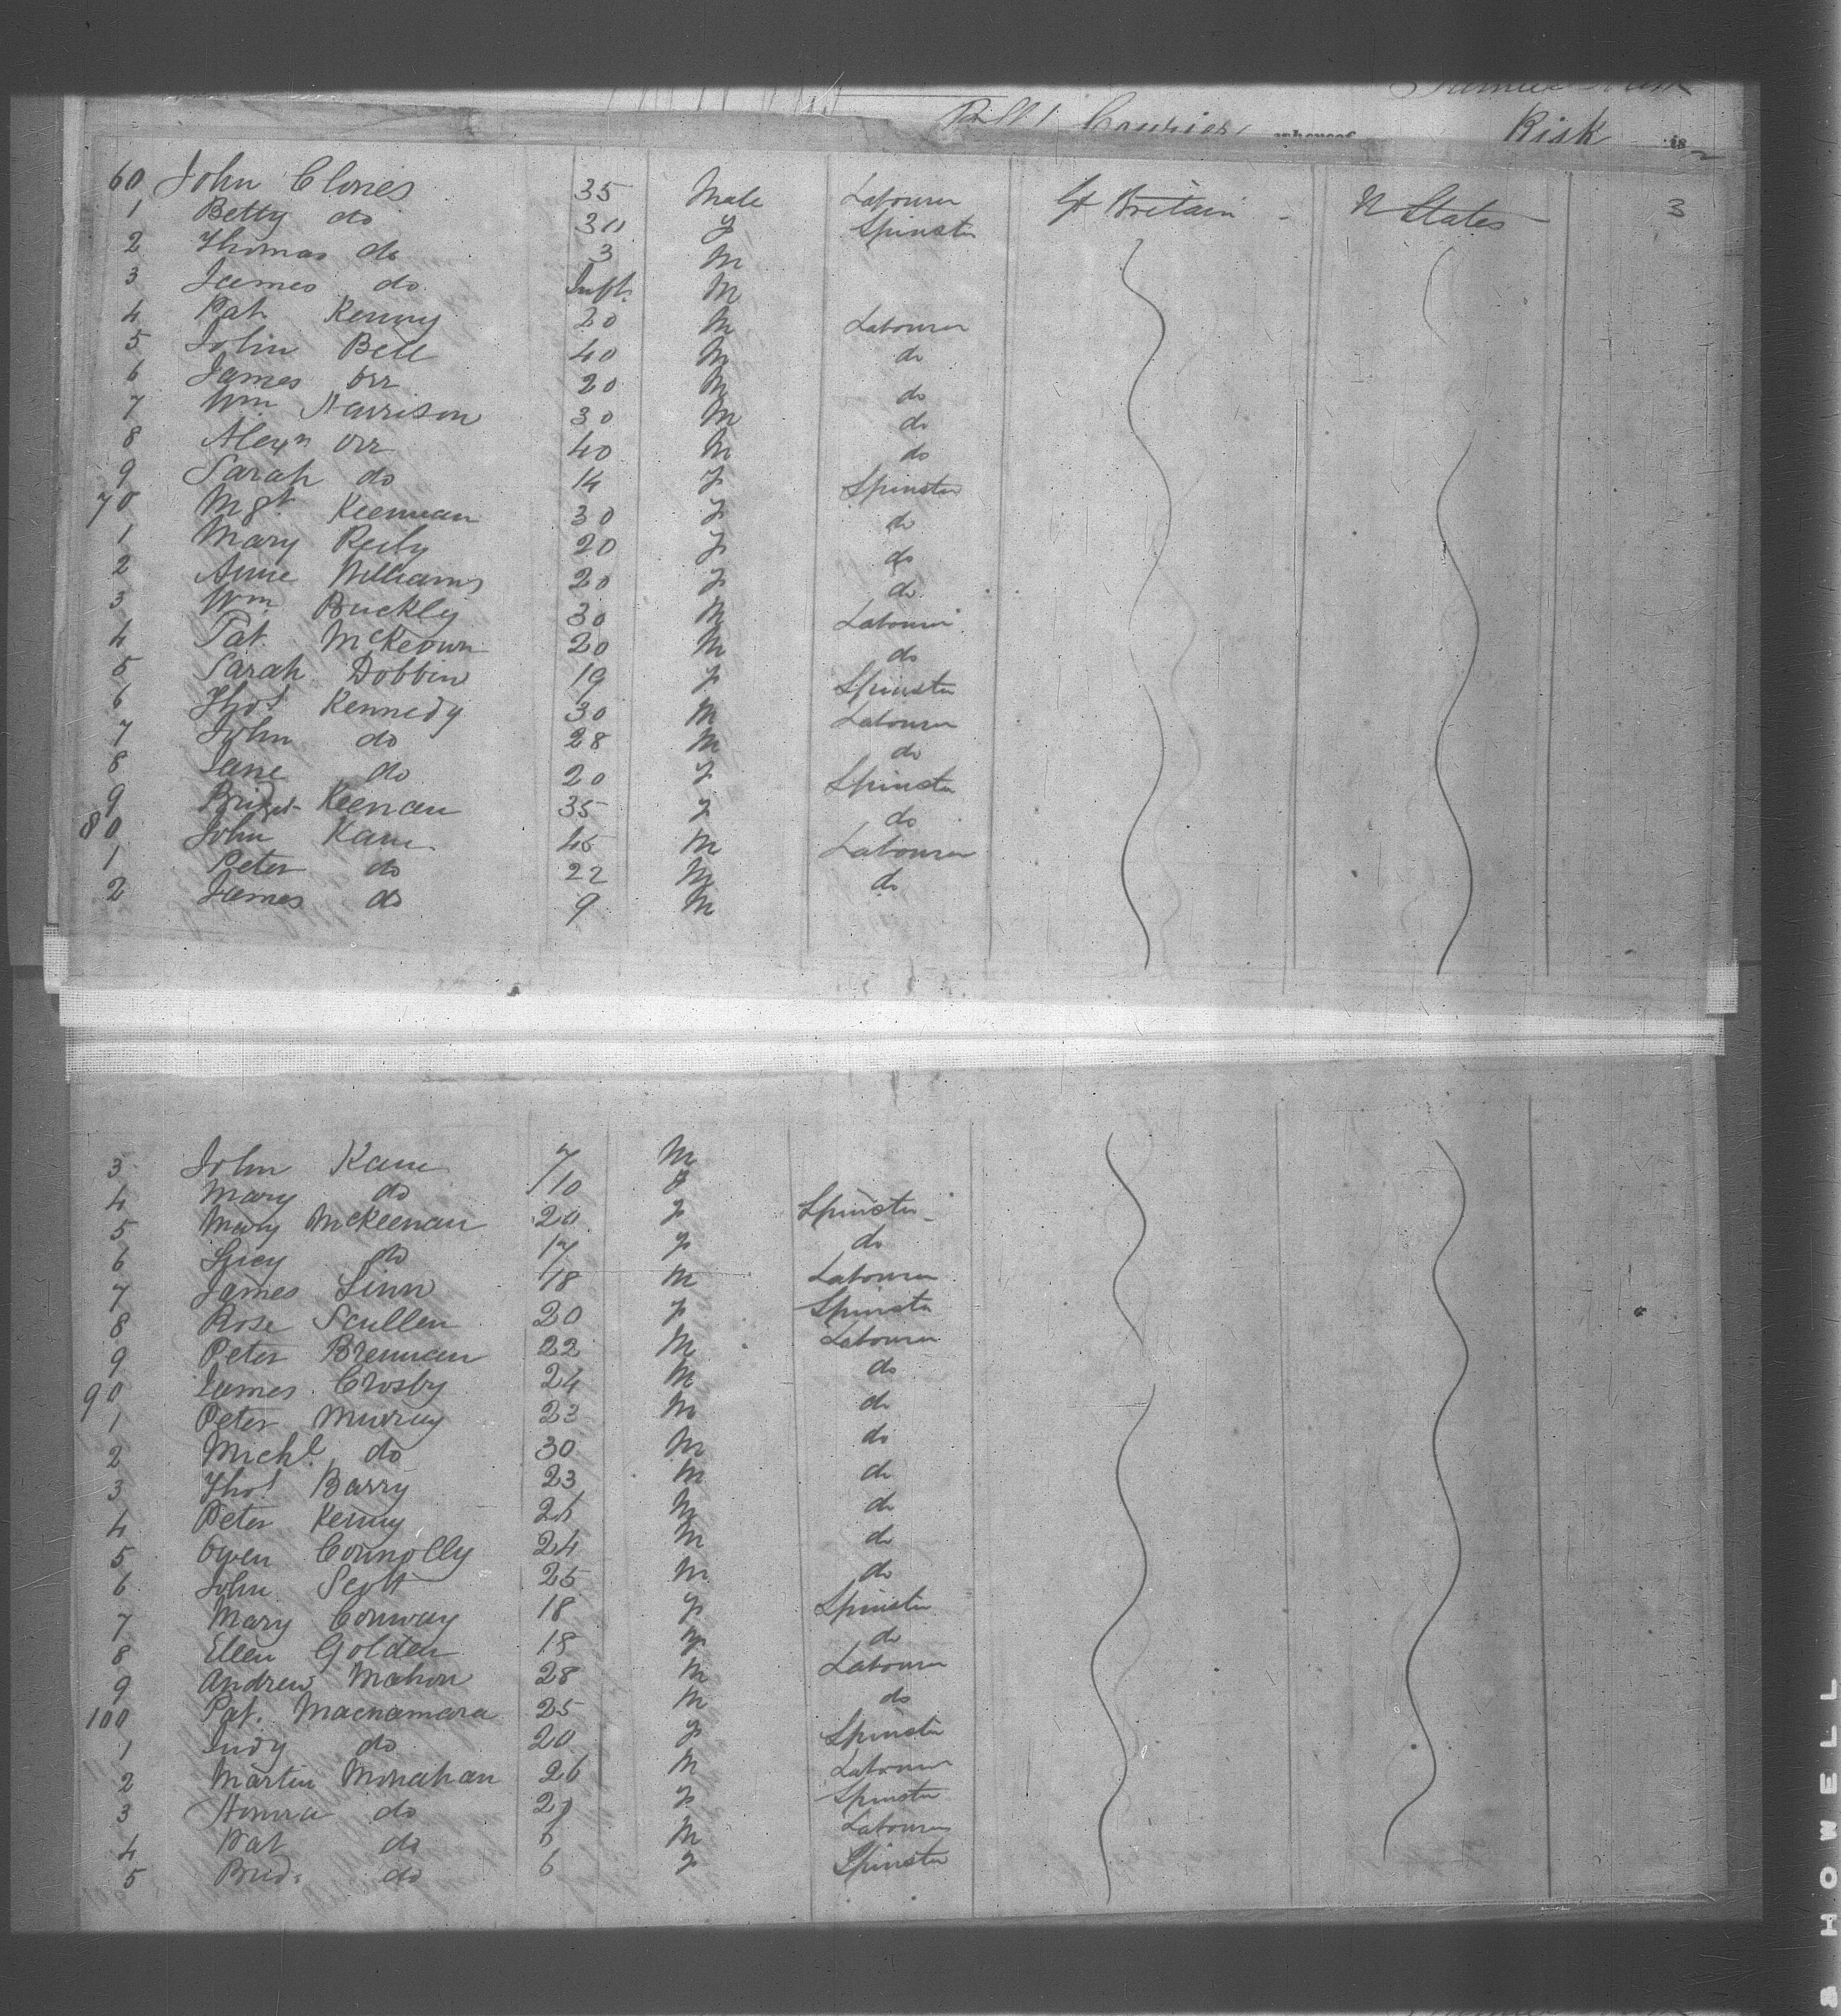 Risk 18
60 John Clones 35 Male Labourer Gt Britain - U States 3
1 Betty do 30 F Spinster
2 Thomas do 3 M
3 James do Inft M
4 Pat Kenny 20 M Labourer
5 John Bell 40 M do
6 James Orr 20 M do
7 Wm Harrison 30 M do
8 Alexr Orr 40 M do
9 Sarah do 14 F Spinster
70 Mgt Keenan 30 F do
1 Mary Reily 20 F do
2 Anne Williams 20 F do
3 Wm Buckly 30 M Labourer
4 Pat McKeown 20 M do
5 Sarah Dobbin 19 F Spinster
6 Thos Kennedy 30 M Labourer
7 John do 28 M do
8 Jane do 20 F Spinster
9 Bridget Keenan 35 F do
80 John Kane 45 M Labourer
1 Peter do 22 M do
2 James do 9 M
3 John Kane 7 M
4 Mary do 10 F
5 Mary McKeenan 20 F Spinster
6 do 17 F do
7 James Linn 18 M Labourer
8 Rose Scullen 20 F Spinster
9 Peter Brennan 22 M Labourer
90 James Crosby 24 M do
1 Peter Murray 23 M do
2 Michl do 30 M do
3 Thos Barry 23 M do
4 Peter Kenny 26 M do
5 Owen Connolly 24 M do
6 John Scott 25 M do
7 Mary Conway 18 F Spinster
8 Ellen Golden 18 F do
9 Andrew Mahon 28 M Labourer
100 Pat. Macnamara 25 M do
1 Judy do 20 F Spinster
2 Martin Monahan 26 M Labourer
3 Honora do F Spinster
4 Pat do M Labourer
5 Brid. do 6 F Spinster
HOWELL